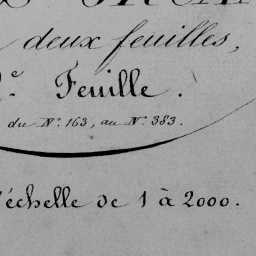 deux feuilles,
Feuille.
du N.° 163, au N.° 383.
échelle de 1 à 2000.